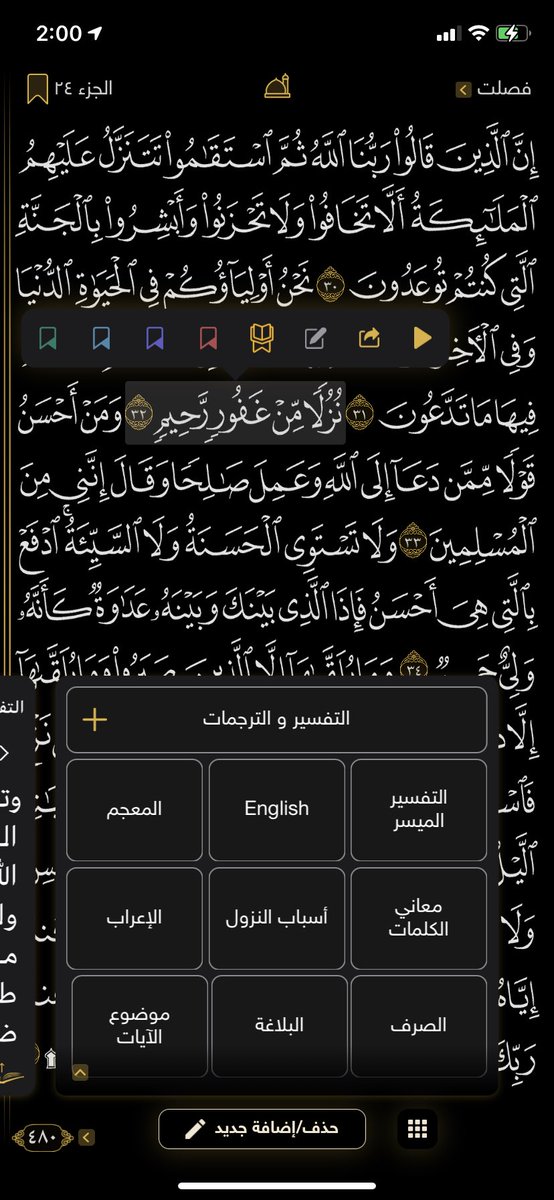 2:00
فصلت
الجزء ٢٤
إِنَّ ٱلَّذِينَ قَالُوا۟ رَبُّنَا ٱللَّهُ ثُمَّ ٱسْتَقَـٰمُوا۟ تَتَنَزَّلُ عَلَيْهِمُ
ٱلْمَلَـٰٓئِكَةُ أَلَّا تَخَافُوا۟ وَلَا تَحْزَنُوا۟ وَأَبْشِرُوا۟ بِٱلْجَنَّةِ
ٱلَّتِى كُنتُمْ تُوعَدُونَ ٣٠ نَحْنُ أَوْلِيَآؤُكُمْ فِى ٱلْحَيَوٰةِ ٱلدُّنْيَا
وَفِى
فِيهَا مَا تَدَّعُونَ ٣١ نُزُلًا مِّنْ غَفُورٍ رَّحِيمٍ ٣٢ وَمَنْ أَحْسَنُ
قَوْلًا مِّمَّن دَعَآ إِلَى ٱللَّهِ وَعَمِلَ صَـٰلِحًا وَقَالَ إِنَّنِى مِنَ
ٱلْمُسْلِمِينَ ٣٣ وَلَا تَسْتَوِى ٱلْحَسَنَةُ وَلَا ٱلسَّيِّئَةُ ۚ ٱدْفَعْ
بِٱلَّتِى هِىَ أَحْسَنُ فَإِذَا ٱلَّذِى بَيْنَكَ وَبَيْنَهُۥ عَدَٰوَةٌ كَأَنَّهُۥ
وَلِىٌّ ٣٤
التفسير و الترجمات
التفسير الميسر
English
المعجم
معاني الكلمات
أسباب النزول
الإعراب
الصرف
البلاغة
موضوع الآيات
إِيَّاهُ
رَبِّكَ
حذف/إضافة جديد
٤٨٠